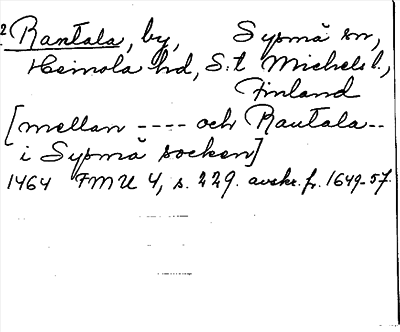 2 Rantala, by, Sysmä sn,
Heinola hd, S:t Michels l.,
Finland
[mellan ---- och Rautala--
i Sysmä socken]
1464 FMU 4, s. 229. avskr. fr. 1649-57.